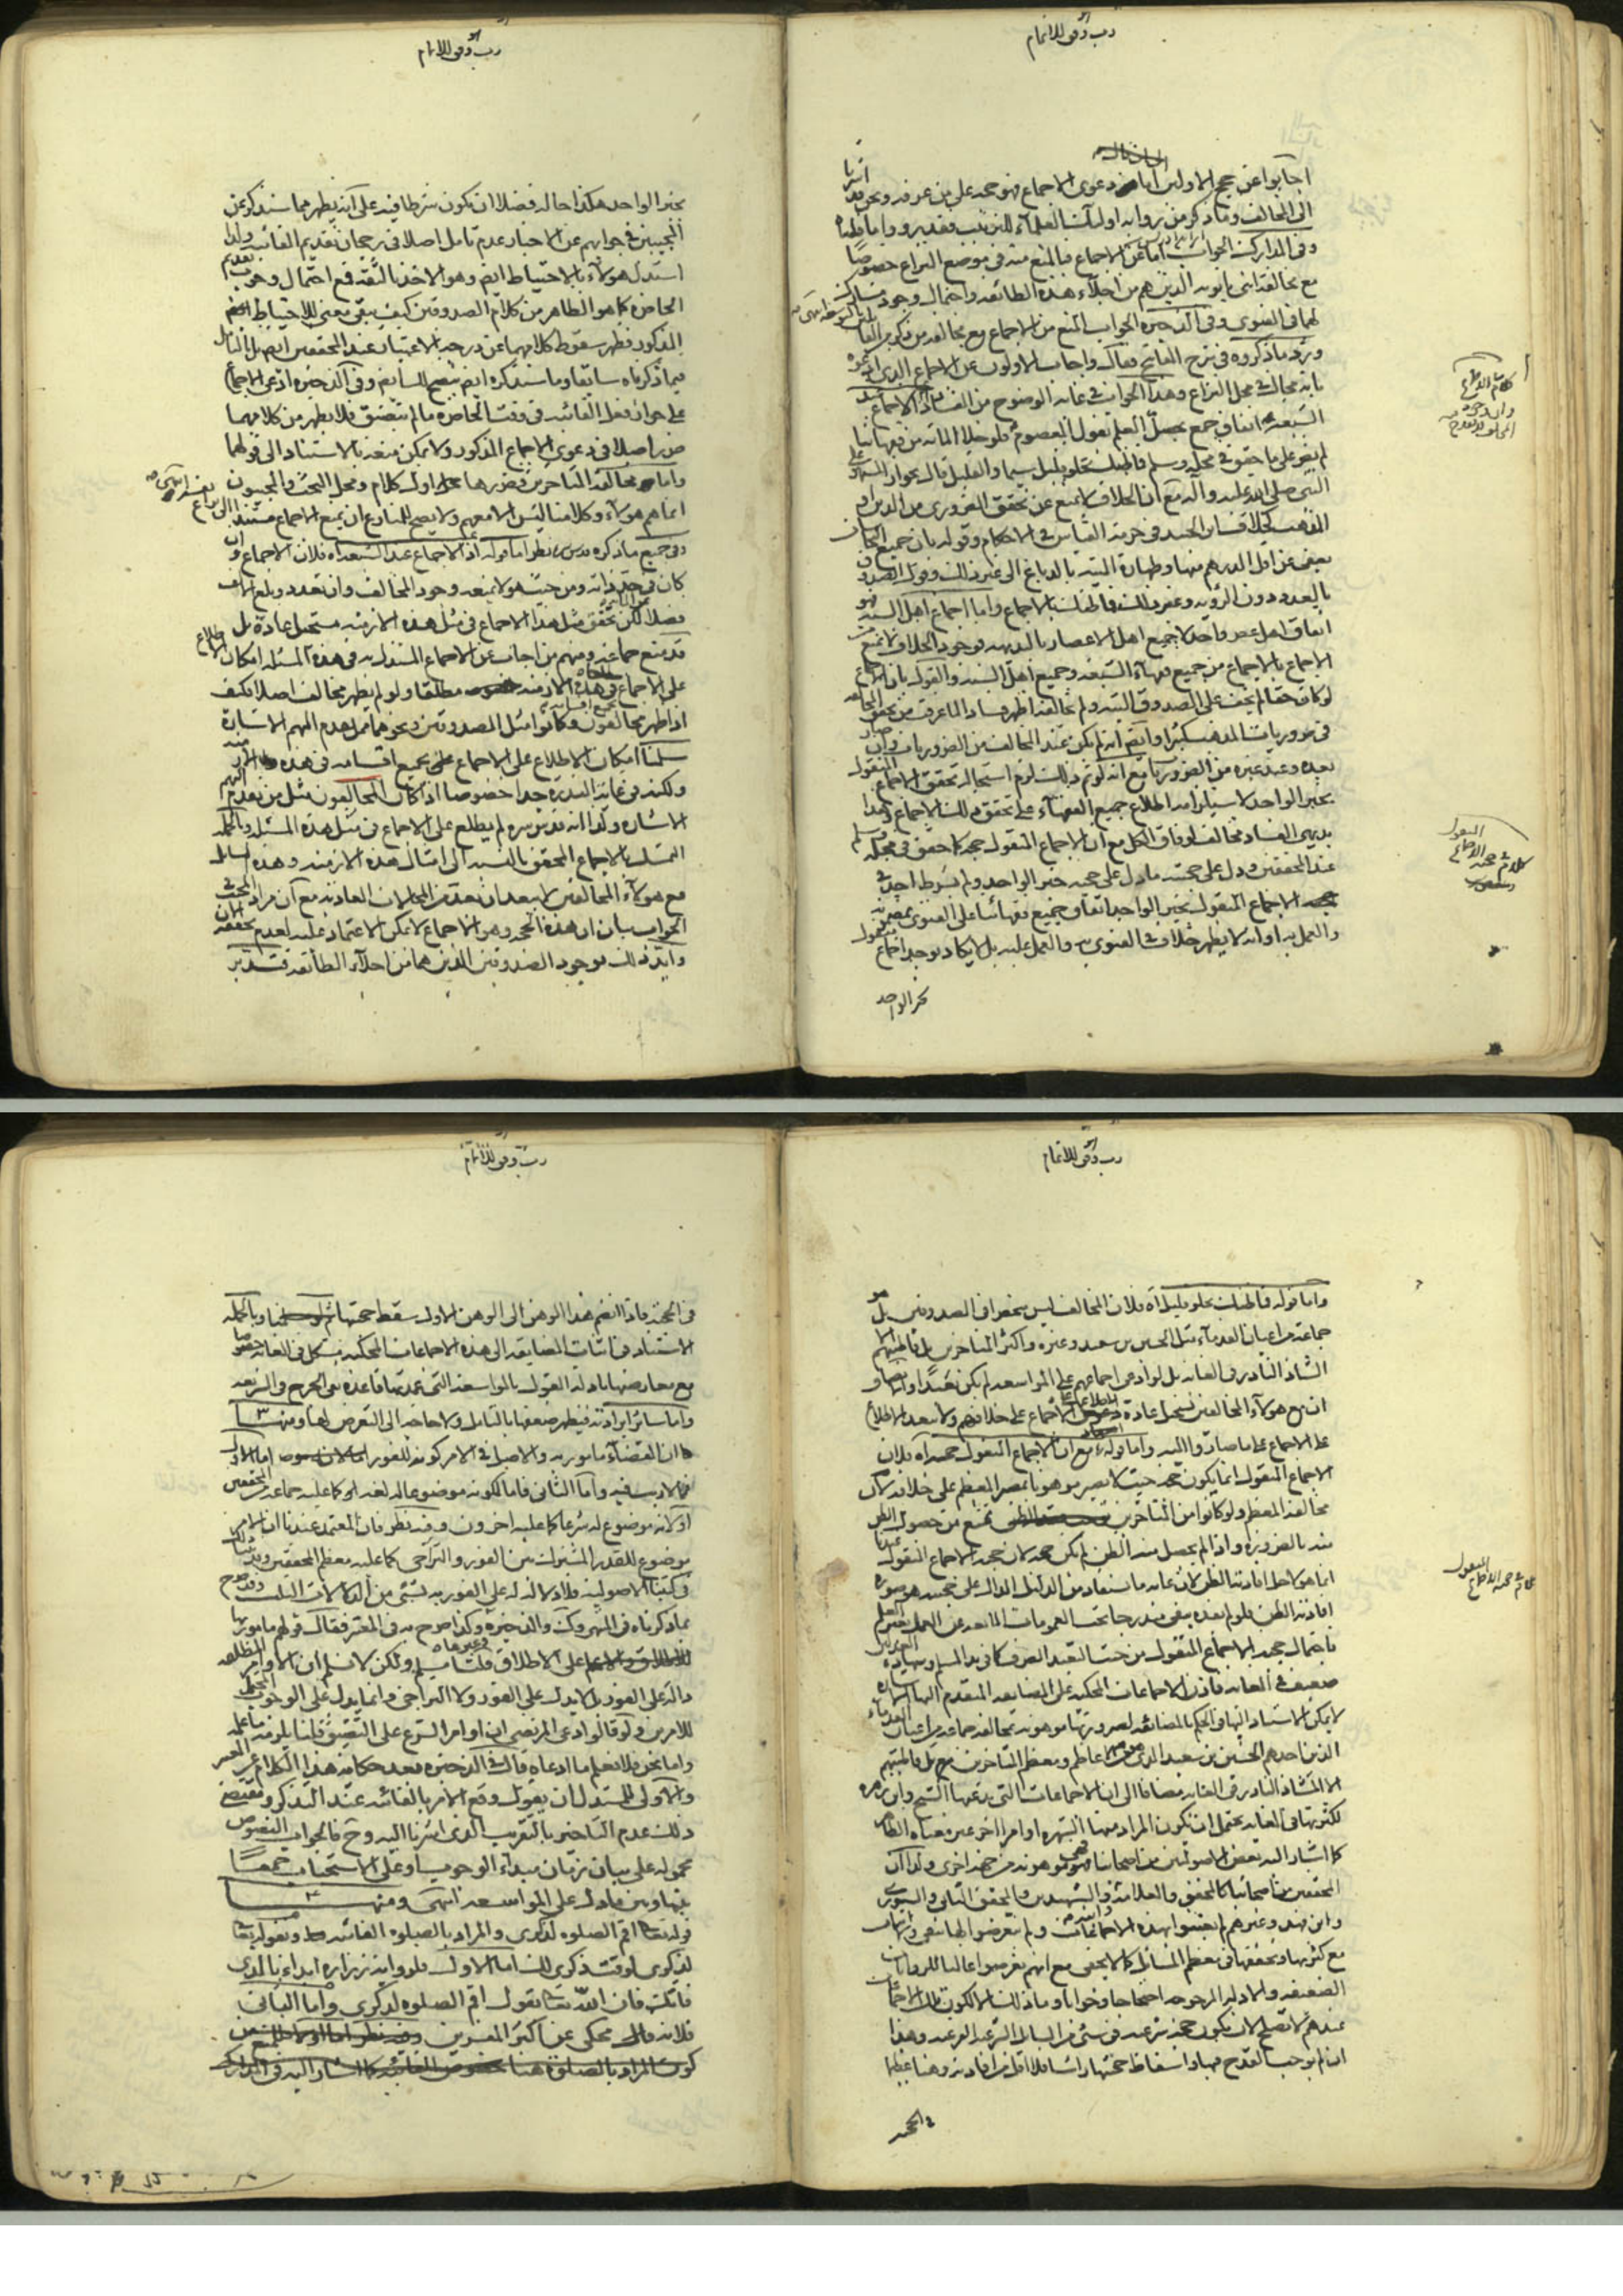 رب وفق للاتمام
اجابوا عن حجج الاولين اما دعوى الاجماع فهو حجة على من عرفه ونحن قد اشرنا
الى المخالف وما ذكر من رواية اولئك العلماء
وفي المدارك الجواب اما عن الاجماع فبالمنع منه في موضع النزاع خصوصا
مع مخالفة ابني بابويه الذين هم من اجلاء هذه الطائفة واحتمال وجود مشارك
لهما في الفتوى وفي الذخيرة الجواب المنع من الاجماع مع مخالفة من ذكر من القدماء
ورد ما ذكروه في شرح المفاتيح فقال واجاب الاولون عن الاجماع الذي ادعوه
بانه محال في محل النزاع وهذا الجواب في غاية الوضوح من الفساد اذ الاجماع عند
الشيعة اتفاق جمع يحصل العلم بقول المعصوم فلو خلا المائة من فقهائنا
لم يضر على ما حقق في محله وسلم فاظنك بخلو قليل سيما والقليل قال بجواز السهو على
النبي صلى الله عليه وآله مع ان الخلاف لا يمنع عن تحقق الضروري من الدين او
المذهب كخلاف ابن الجنيد في حرمة القياس في الاحكام وقوله بان جميع النجاسات
يعفى عن اقل الدرهم منها وطهارة الميتة بالدباغ الى غير ذلك وقول الصدوق
بالعدد دون الرؤية وغير ذلك فاظنك بالاجماع واما اجماع اهل السنة فهو
اتفاق اهل عصر واحد لا جميع اهل الاعصار بالبديهة فوجود الخلاف لا يمنع
الاجماع بالاجماع من جميع فقهاء الشيعة وجميع اهل السنة والقول بان الاجماع
لو كان حقا لم يخف على الصدوق البتة ولم يخالفه اظهر فسادا لما عرفت من تحقق المخالفة
في ضروريات المذهب كثيرا وايضا انه لم يكن عند المخالف من الضروريات وان صار
بعده وعند غيره من الضروريات مع انه لو تم ذلك لزم استحالة تحقق الاجماع المنقول
بخبر الواحد لاستلزامه اطلاع جميع الفقهاء على تحقق ذلك الاجماع وهذا
بديهي الفساد مخالف لوفاق الكل مع ان الاجماع المنقول حجة كما حقق في محله وسلم
عند المحققين ودل على حجيته ما دل على حجية خبر الواحد ولم يشترط احد في
حجية الاجماع المنقول بخبر الواحد اتفاق جميع فقهائنا على الفتوى بمضمونه
والعمل به او انه لا يظهر خلاف في الفتوى به والعمل عليه بل لا يكاد يوجد اجماع منقول
بخبر الواحد
رب وفق للاتمام
بخبر الواحد هكذا حاله فضلا ان يكون شرطا فيه على انه يظهر مما سنذكر عن
المجيبين في جوابهم عن الاخبار عدم تامل اصلا في رجحان تقديم الفائتة ولذا
استدل هؤلاء بالاحتياط ايضا وهو الاخذ بالثقة فمع احتمال وجوب تقديم
الحاضرة كما هو الظاهر من كلام الصدوقين كيف يبقى معنى للاحتياط
المذكور فظهر سقوط كلامهما عن درجة الاعتبار عند المحققين ايضا بل بالتامل
فيما ذكرناه سابقا وما سنذكره ايضا يتضح لك ايضا وفي الذخيرة ادعى الاجماع
على جواز فعل الفائتة في وقت الحاضرة ما لم يتضيق فلا يظهر من كلامهما
ضرر اصلا في دعوى الاجماع المذكور ولا يمكن منعه بالاستناد الى قولهما
واما مخالفة المتاخرين فضررها اول كلام ومحل البحث والمجيبون
انما هم هؤلاء وكلامنا ليس الا معهم ولا يصح للمنازع ان يمنع الاجماع مستندا الى نزاع نفسه انتهى
وفي جميع ما ذكره قدس سره نظر اما قوله اذ الاجماع عند الشيعة اه فلان الاجماع وان
كان في حد ذاته ومن حيث هو لا يمنعه وجود المخالف وان تعدد وبلغ الاف
فضلا عن المائة لكن تحقق مثل هذا الاجماع في مثل هذه الازمنة مستحيل عادة بل
قد منع جماعة ومنهم من اجاب عن الاجماع المستدل به في هذه المسئلة امكان الاطلاع
على الاجماع في هذه الازمنة مطلقا ولو لم يظهر مخالف اصلا فكيف
اذا ظهر مخالفون وكانوا مثل الصدوقين ونحوهما ممن تقدم اليهم الاشارة
سلمنا امكان الاطلاع على الاجماع بجميع اقسامه في هذه الازمنة
ولكنه في غاية الندرة جدا خصوصا اذا كان المخالفون مثل من تقدم اليهم
الاشارة ولذا انه قدس سره لم يطلع على الاجماع في مثل هذه المسئلة وبالجملة
التمسك بالاجماع المحقق بالنسبة الى امثال هذه الازمنة وهذه المسائل
مع هؤلاء المخالفين لا يبعد ان يعد من المحالات العادية مع ان مراد المجيب في
الجواب بيان ان هذه الحجة وهو الاجماع لا يمكن الاعتماد عليه لعدم تحققه
وايد ذلك بوجود الصدوقين الذين هما من اجلاء الطائفة فتدبر
رب وفق للاتمام
واما قوله فاظنك بخلو قليل اه فلان المخالف ليس بمنحصر في الصدوقين بل هو
جماعة من اعيان القدماء مثل الحسين بن سعيد وغيره واكثر المتاخرين بل قاطبتهم الا
الشاذ النادر في الغاية بل لو ادعى اجماعهم على المواسعة لم يكن بعيدا
ان مع هؤلاء المخالفين يستحيل عادة الاجماع على خلافهم ولا يبعد الاطلاع
على الاجماع على ما صاروا اليه واما قوله مع ان الاجماع المنقول حجة اه فلان
الاجماع المنقول انما يكون حجة حيث لا يصير موهونا بمصير المعظم على خلافه لان
مخالفة المعظم ولو كانوا من المتاخرين تمنع من حصول الظن
منه بالضرورة واذا لم يحصل منه الظن لم يكن حجة لان حجية الاجماع المنقول عندنا
انما هو لاجل افادته الظن لان غاية ما يستفاد من الدليل الدال على حجيته هو صورة
افادته الظن فلو لم يفده يبقى مندرجا تحت العمومات المانعة عن العمل بغير العلم
لا يمكن الاستناد اليها في الحكم بالمضايقة لصيرورتها موهونة بمخالفة جماعة من اعيان القدماء
الذين احدهم الحسين بن سعيد ومعظم المتاخرين بل قاطبتهم
الا الشاذ النادر في الغاية مضافا الى ان الاجماعات التي يدعيها الشيخ وابن زهرة
لكثرتها في الغاية يحتمل ان يكون المراد منها الشهرة او امرا اخر غير معناه الظاهر
كما اشار اليه بعض الاصوليين من اصحابنا فهي موهونة من جهة اخرى ولذا ان
المحققين من اصحابنا كالمحقق والعلامة والشهيدين والمحقق الثاني والسيوري
وابن فهد وغيرهم لم يعتنوا بهذه الاجماعات ولم يتعرضوا لها
مع كثرتها وتحققها في معظم المسائل كما لا يخفى مع انهم تعرضوا غالبا للروايات
الضعيفة والادلة المرجوحة احتجاجا وجوابا وما ذلك الا لكون تلك الاجماعات
عندهم لا تصلح لان يكون حجة شرعية في شئ من المسائل الشرعية الفرعية وهذا
ان لم يوجب القدح فيها واسقاط حجيتها راسا فلا اقل من افادته وهنا عظيما
في الحجية
رب وفق للاتمام
في الحجية فاذا انضم هذا الوهن الى الوهن الاول سقط حجيتها وبالجملة
الاستناد في اثبات المضايقة الى هذه الاجماعات المحكية مشكل في الغاية خصوصا
مع معارضتها بادلة القول بالمواسعة التي عمدتها قاعدة نفي الحرج في الشريعة
واما سائر ايراداته فيظهر ضعفها بالتامل ولا حاجة الى التعرض لها ومنها ٣
ان القضاء مامور به والاصل في الامر كونه للفور اما الاول
فمما لا ريب فيه واما الثاني فاما لكونه موضوعا له لغة كما عليه جماعة من المحققين
او لانه موضوع له شرعا كما عليه اخرون وفيه نظر فان المعتمد عندنا ان الامر
موضوع للقدر المشترك بين الفور والتراخي كما عليه معظم المحققين وقد بينا ذلك
في كتبنا الاصولية فلا دلالة له على الفورية بشئ من الدلالات الثلث وقد صرح
بما ذكرناه في المدارك والذخيرة وكذا صرح به في المعتبر فقال قولهم مامور بها
على الاطلاق قلنا مسلم ولكن لا نسلم ان الاوامر المطلقة
دالة على الفور بل لا يدل على الفور ولا التراخي وانما يدل على الوجوب المحتمل
للامرين ولو قالوا ادعى المرتضى ان اوامر الشرع على التضيق قلنا يلزمه ما علمه
واما نحن فلا نعلم ما ادعاه قال في الذخيرة بعد حكاية هذا الكلام عن المعتبر
والاولى للمستدل ان يقول وقع الامر بالفائتة عند التذكر ومقتضى
ذلك عدم التاخير بالتقريب الذي اشرنا اليه وح فالجواب النصوص
محمولة على بيان زمان مبداء الوجوب او على الاستحباب جمعا
بينها وبين ما دل على المواسعة انتهى ومنها ٤
قوله تعالى اقم الصلوة لذكري والمراد بالصلوة الفائتة وبقوله تعالى
لذكري لوقت ذكري لك اما الاول فلرواية زرارة ابداء بالذي
فاتتك فان الله تعالى يقول اقم الصلوة لذكري واما الثاني
فلانه محكي عن اكثر المفسرين
كون المراد بالصلوة هنا خصوص الفائتة كما اشار اليه في المدارك